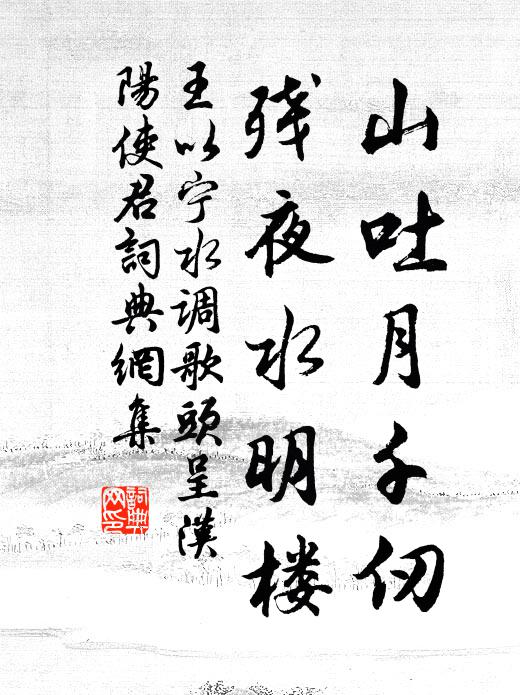 山吐月千仞
残夜水明楼
王以宁水调歌头呈漢
陽使君詞典網集
詞典网印